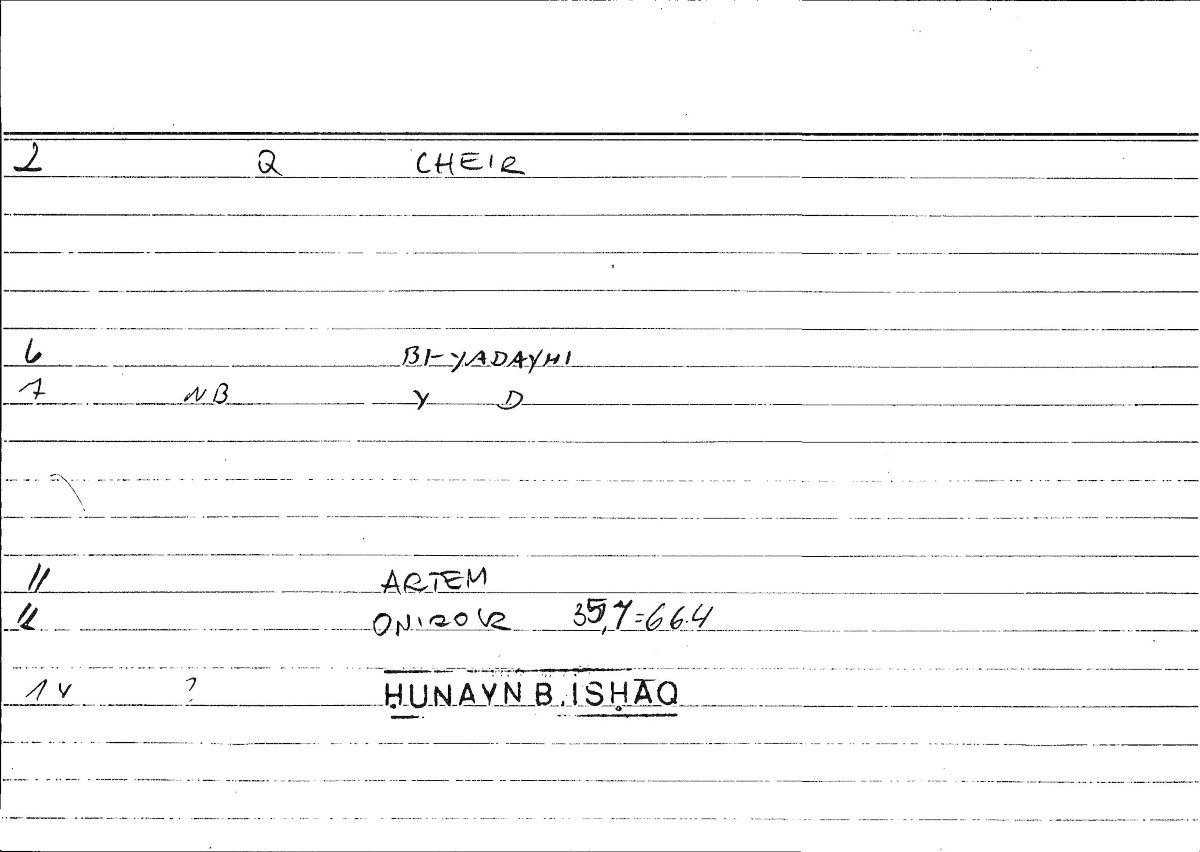 2 Q CHEIR
6 BI-YADAYHI
7 NB Y D
11 ARTEM
12 ONIROKR 35,7=66.4
1v ? ḤUNAYN B. ISḤĀQ